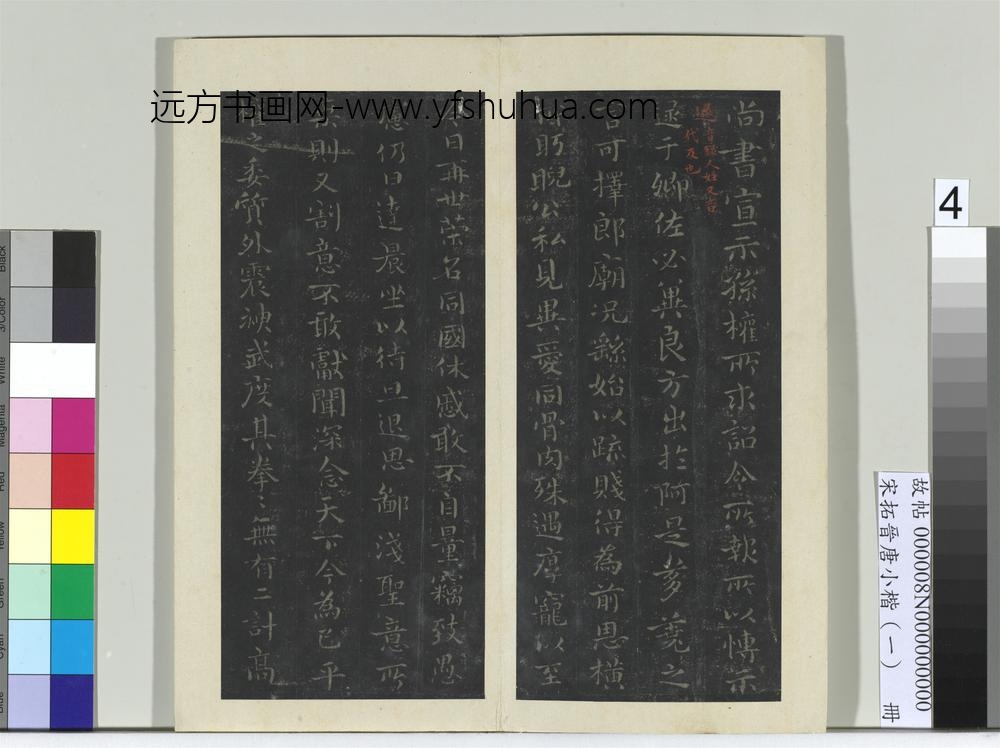 远方书画网-www.yfshuhua.com
尚書宣示孫權所求詔令所報所以博示
逮于卿佐必冀良方出於阿是芻蕘之
言可擇郎廟況繇始以疏賤得為前恩橫
所眄睨公私見異愛同骨肉殊遇厚寵以至
今日再世榮名同國休慼敢不自量竊致愚
慮仍日達晨坐以待旦退思鄙淺聖意所
棄則又割意不敢獻聞深念天下今為已平
權之委質外震神武度其拳〻無有二計高
人姓又音
代及也
4
故帖 000008N000000000
宋拓晉唐小楷（一） 冊
Black
3/Color
White
Magenta
Red
Yellow
Green
Cyan
Blue